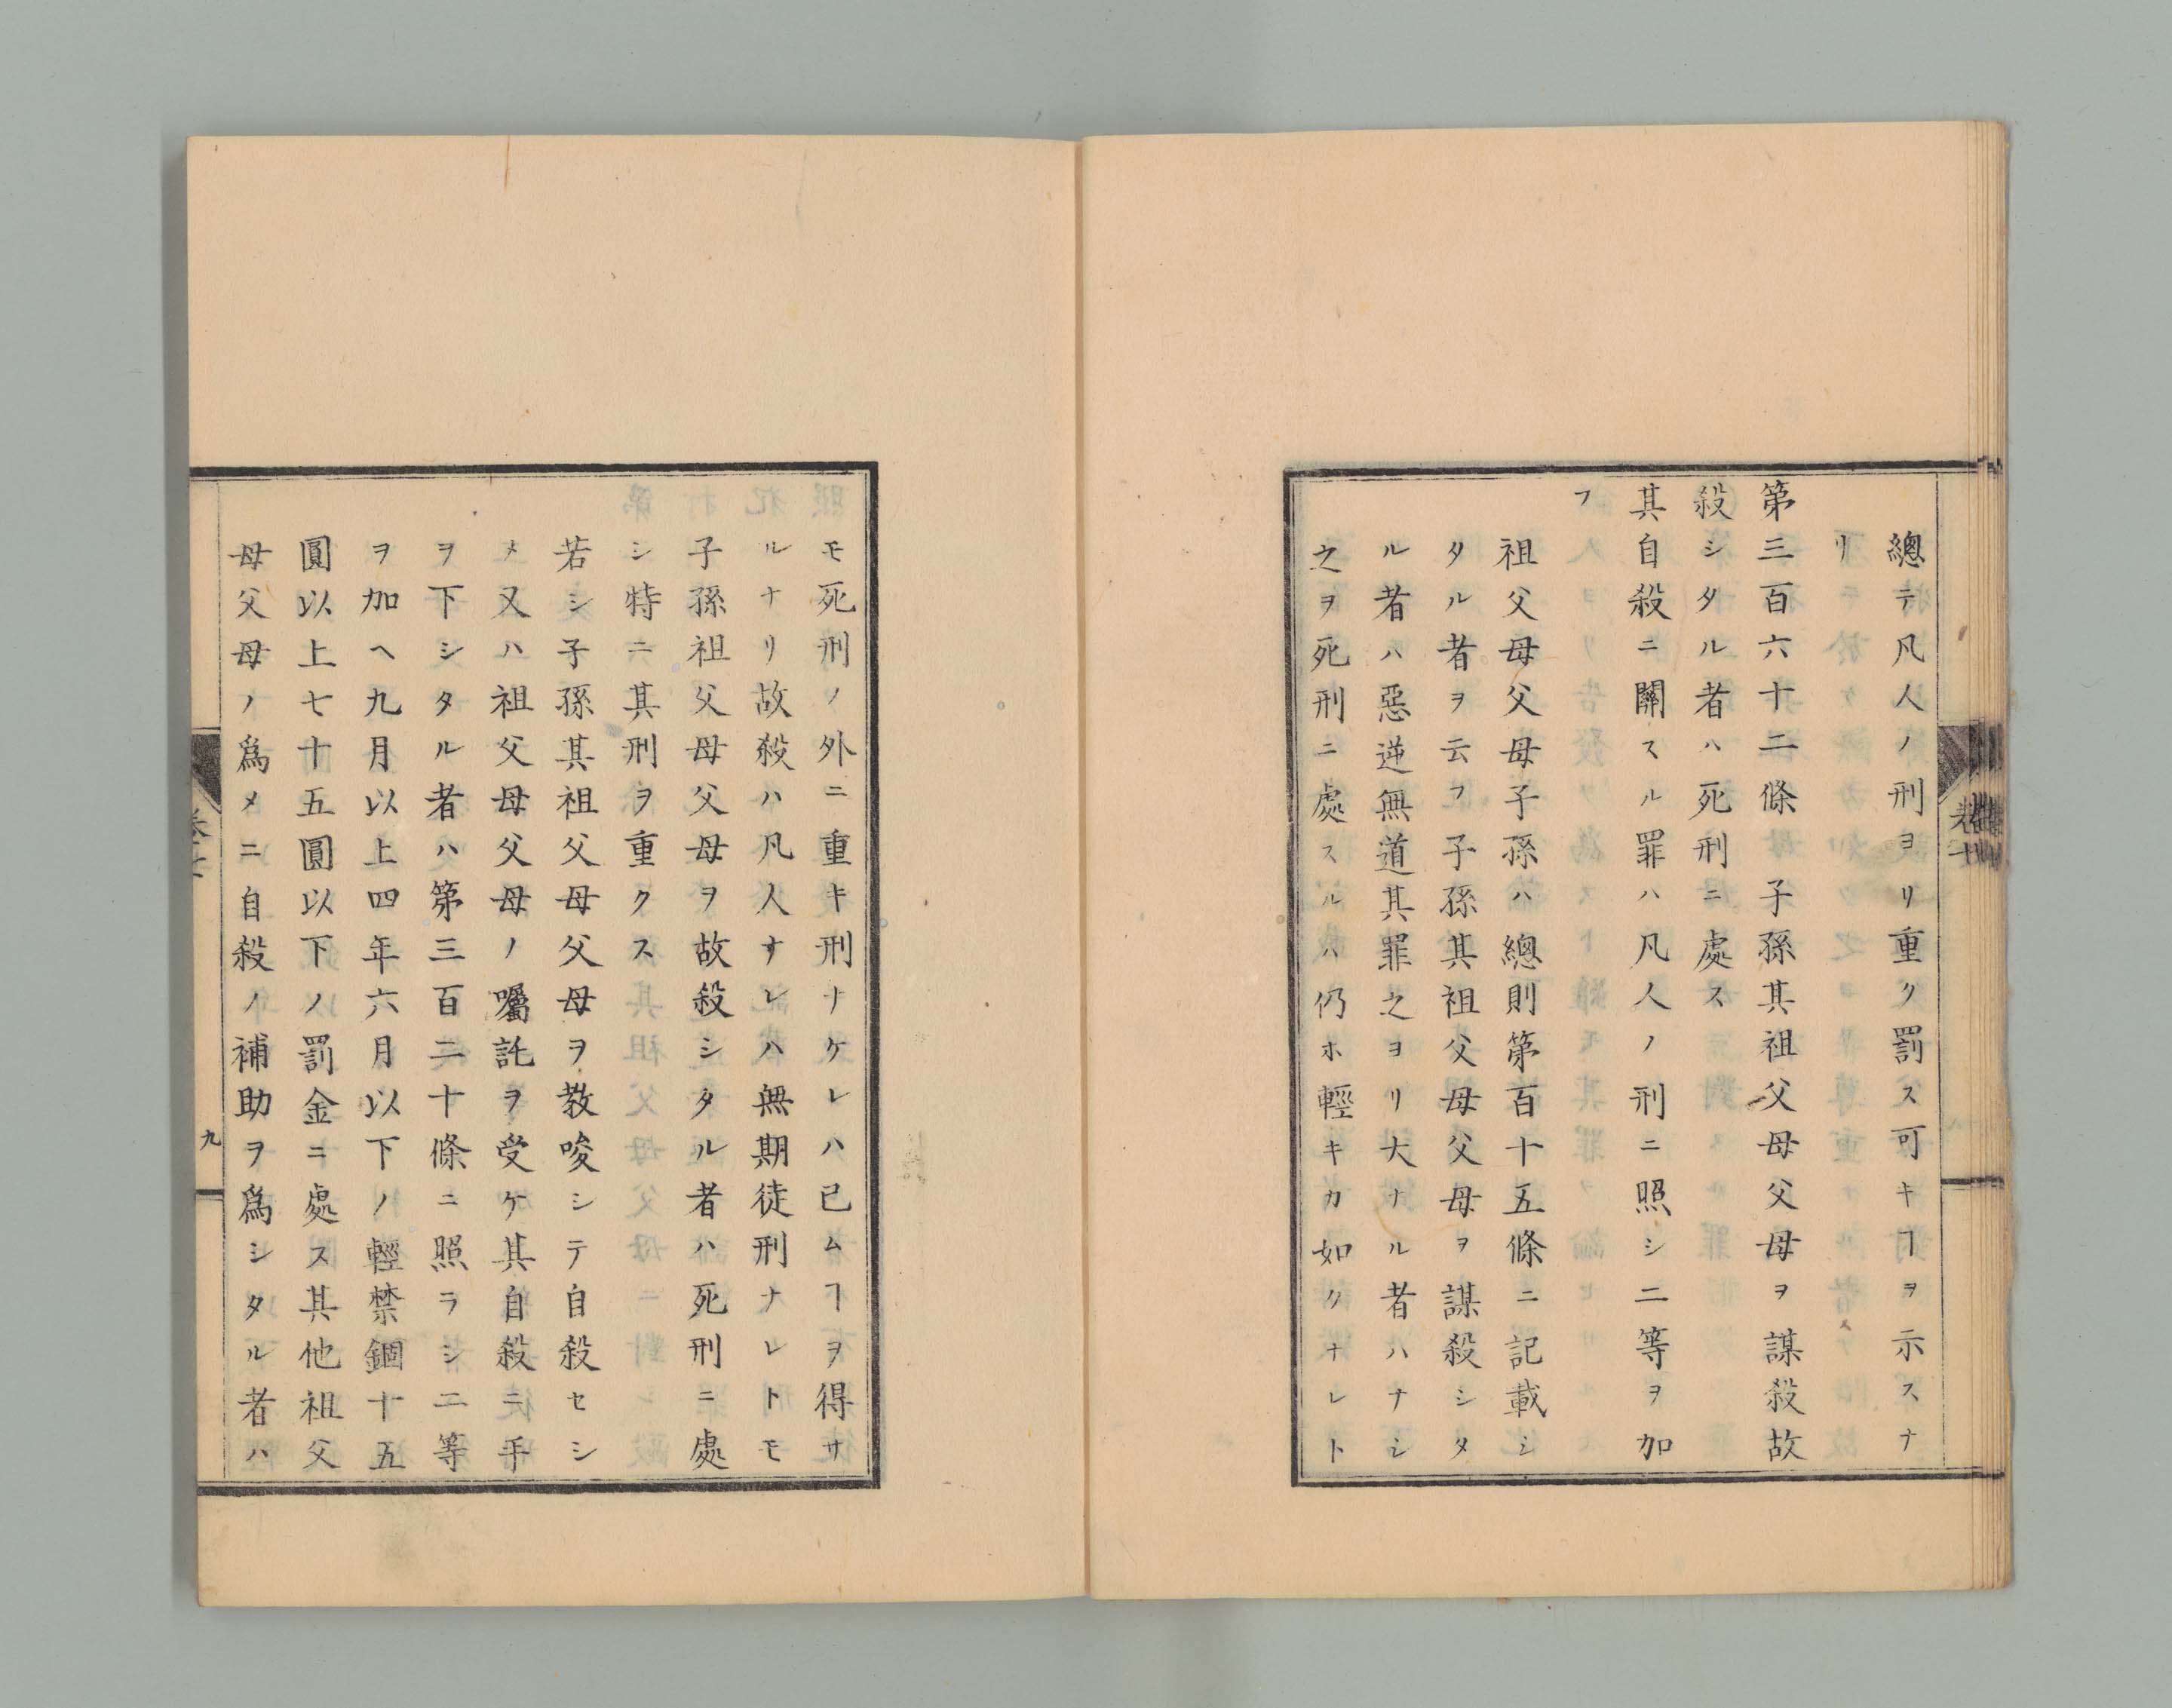 總テ凡人ノ刑ヨリ重ク罰ス可キヿヲ示スナ
リ
第三百六十二條　子孫其祖父母父母ヲ謀殺故
殺シタル者ハ死刑ニ處ス
其自殺ニ關スル罪ハ凡人ノ刑ニ照シ二等ヲ加
フ
祖父母父母子孫ハ總則第百十五條ニ記載シ
タル者ヲ云フ子孫其祖父母父母ヲ謀殺シタ
ル者ハ惡逆無道其罪之ヨリ大ナル者ハナシ
之ヲ死刑ニ處スルハ仍ホ輕キカ如クナレト
モ死刑ノ外ニ重キ刑ナケレハ已ムヿヲ得サ
ルナリ故殺ハ凡人ナレハ無期徒刑ナレトモ
子孫祖父母父母ヲ故殺シタル者ハ死刑ニ處
シ特ニ其刑ヲ重クス
若シ子孫其祖父母父母ヲ教唆シテ自殺セシ
メ又ハ祖父母父母ノ囑託ヲ受ケ其自殺ニ手
ヲ下シタル者ハ第三百二十條ニ照ラシ二等
ヲ加ヘ九月以上四年六月以下ノ輕禁錮十五
圓以上七十五圓以下ノ罰金ニ處ス其他祖父
母父母ノ爲メニ自殺ノ補助ヲ爲シタル者ハ
九